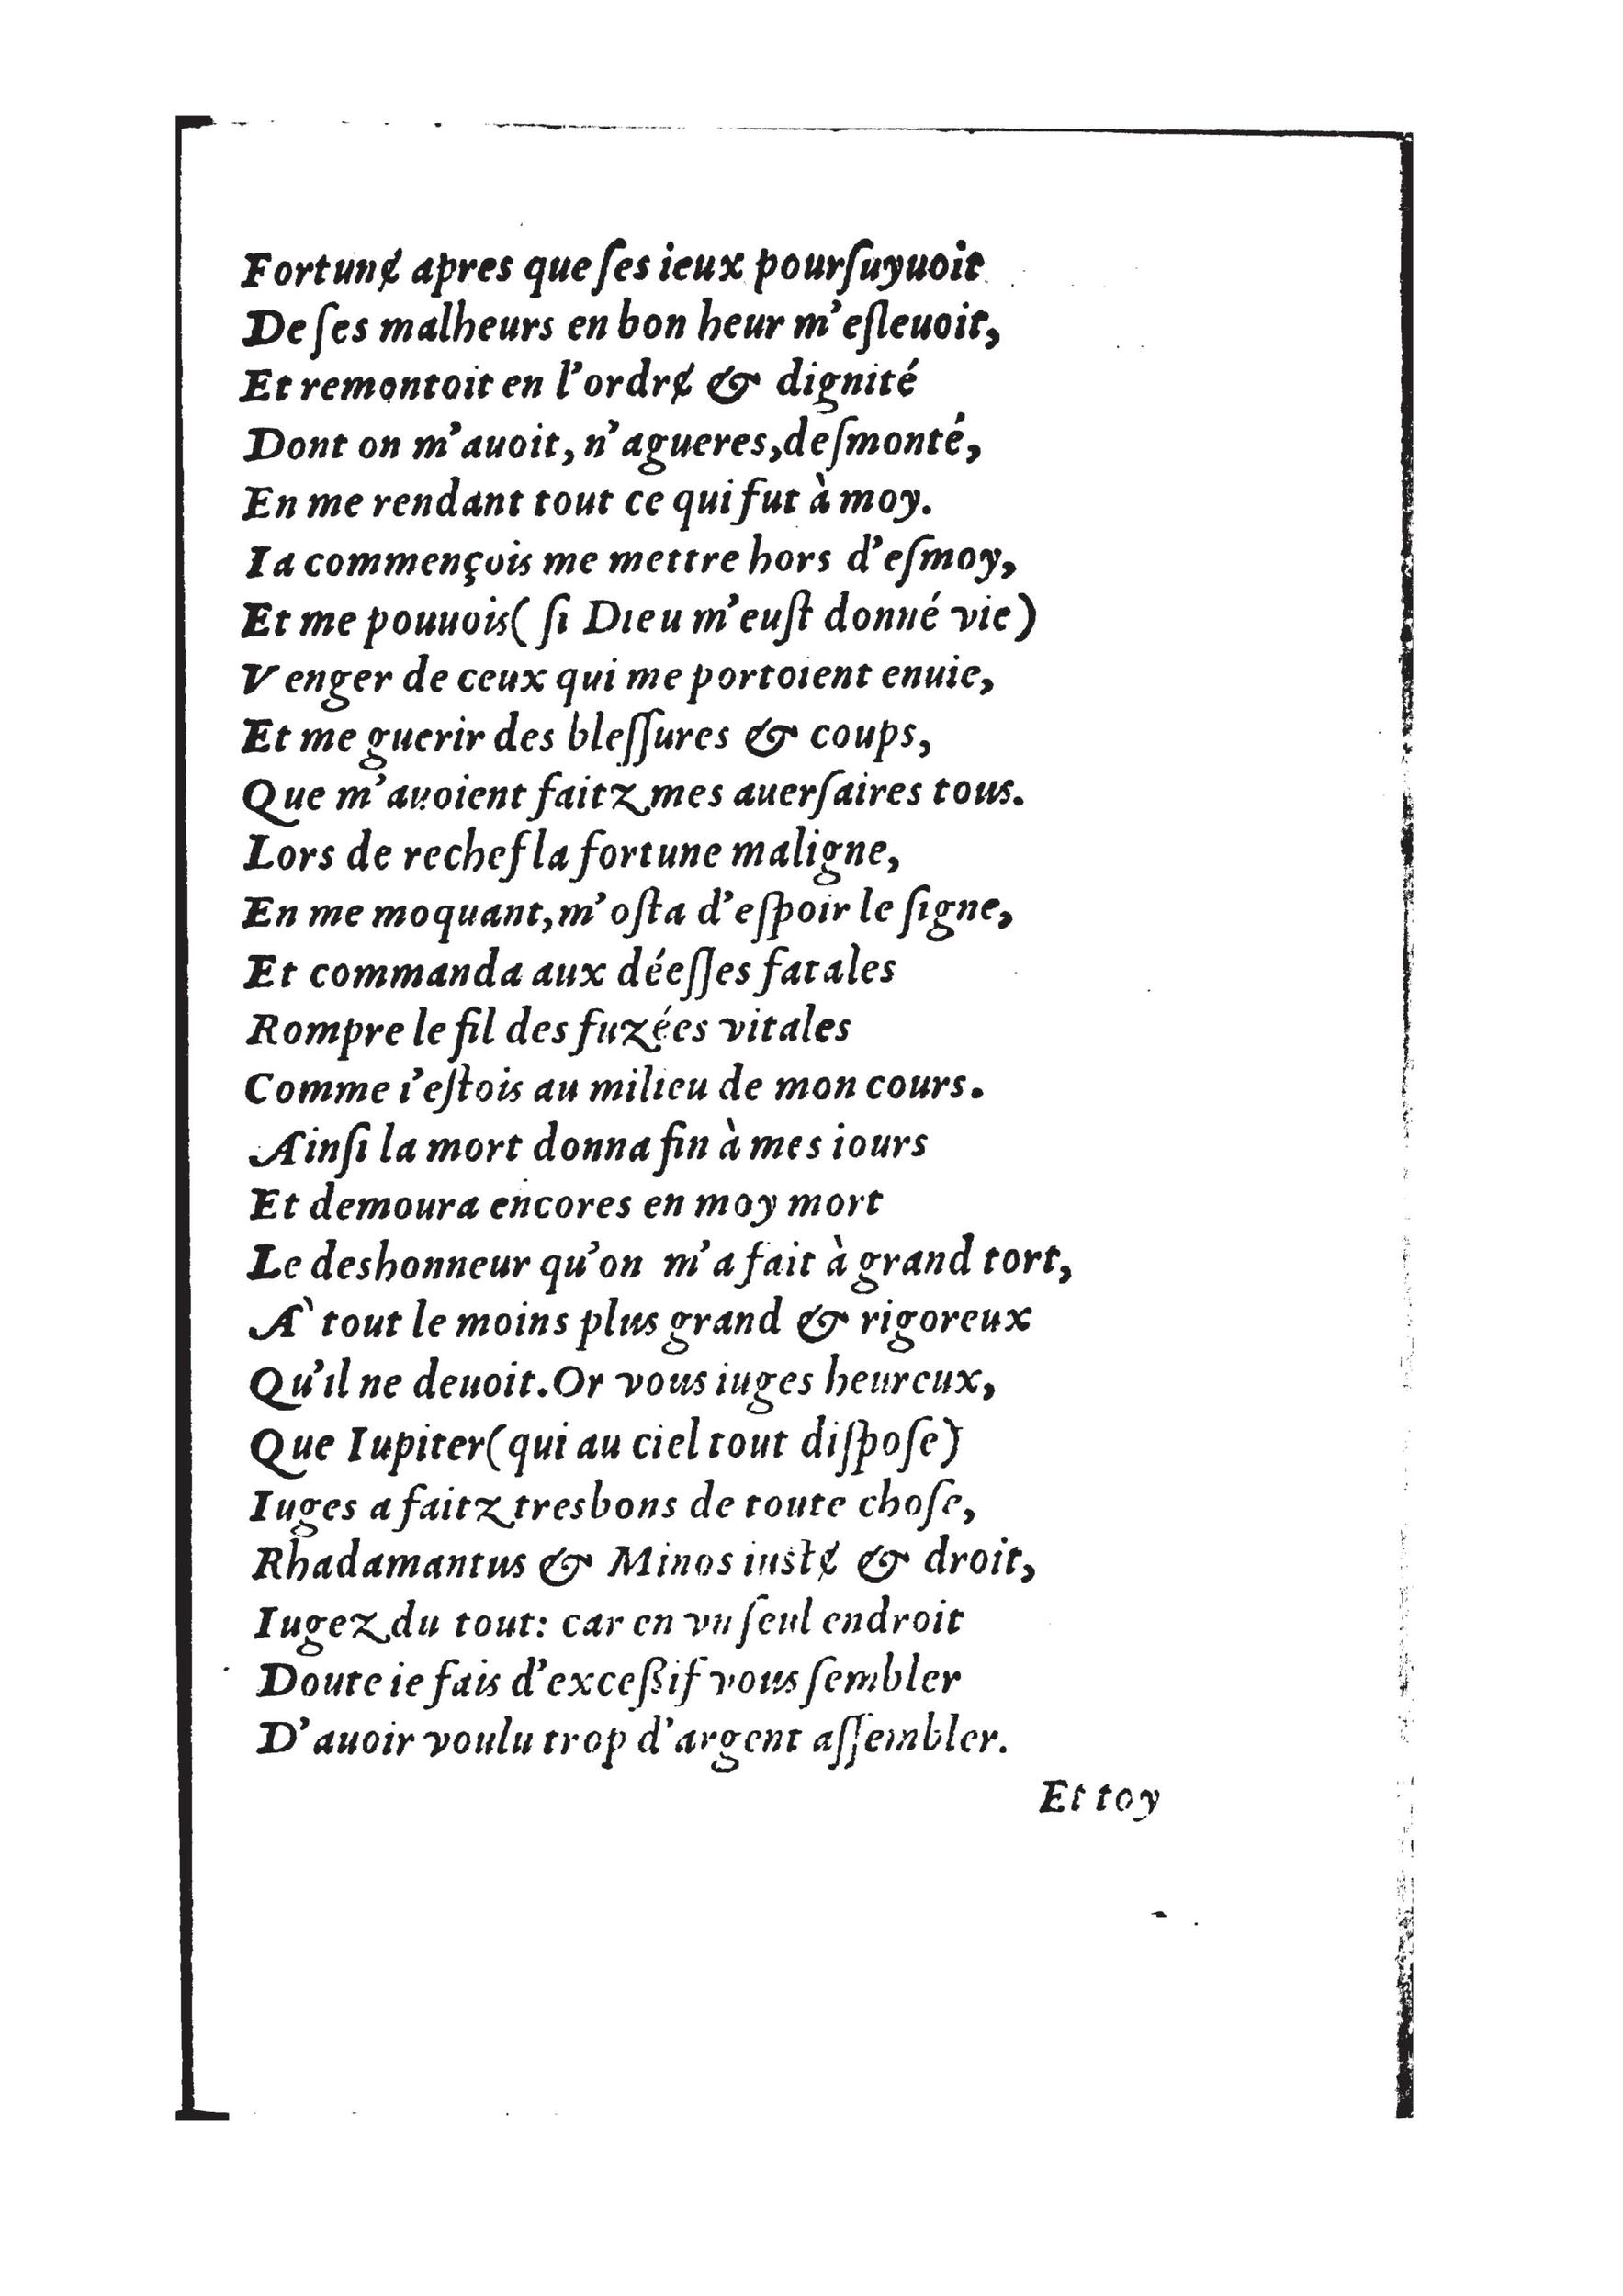 Fortunɇ apres que ſes ieux pourſuyuoit
De ſes malheurs en bon heur m’eſleuoit,
Et remontoit en l’ordrɇ & dignité
Dont on m’auoit, n’agueres, deſmonté,
En me rendant tout ce qui fut à moy.
Ia commençois me mettre hors d’eſmoy,
Et me pouuois( ſi Dieu m’euſt donné vie)
Venger de ceux qui me portoient enuie,
Et me guerir des bleſſures & coups,
Que m’avoient faitz mes auerſaires tous.
Lors de rechef la fortune maligne,
En me moquant, m’oſta d’eſpoir le ſigne,
Et commanda aux déeſſes fatales
Rompre le fil des fuzées vitales
Comme i’eſtois au milieu de mon cours.
Ainſi la mort donna fin à mes iours
Et demoura encores en moy mort
Le deshonneur qu’on m’a fait à grand tort,
À tout le moins plus grand & rigoreux
Qu’il ne deuoit. Or vous iuges heureux,
Que Iupiter (qui au ciel tout diſpoſe)
Iuges a faitz tresbons de toute choſe,
Rhadamantus & Minos iustɇ & droit,
Iugez du tout: car en vn ſeul endroit
Doute ie fais d’exceßif vous ſembler
D’auoir voulu trop d’argent aſſembler.
Et toy